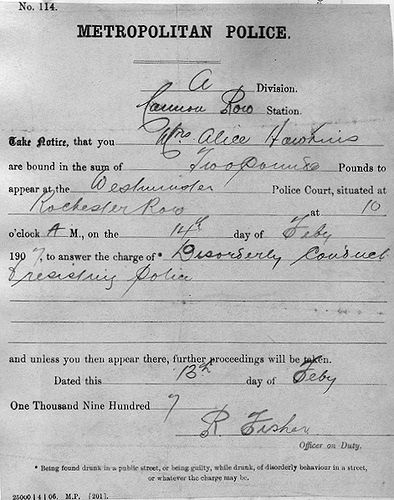 No. 114.
METROPOLITAN POLICE.
A Division.
Cannon Row Station.
Take Notice, that you Mrs Alice Hawkins
are bound in the sum of Two pounds Pounds to
appear at the Westminster Police Court, situated at
Rochester Row at 10
o'clock A M., on the 14th day of Feby
1907, to answer the charge of * Disorderly Conduct
& resisting Police
and unless you then appear there, further proceedings will be taken.
Dated this 13th day of Feby
One Thousand Nine Hundred 7
R. Fisher
Officer on Duty.
* Being found drunk in a public street, or being guilty, while drunk, of disorderly behaviour in a street,
or whatever the charge may be.
25000 | 4 | 06. M.P. [201].